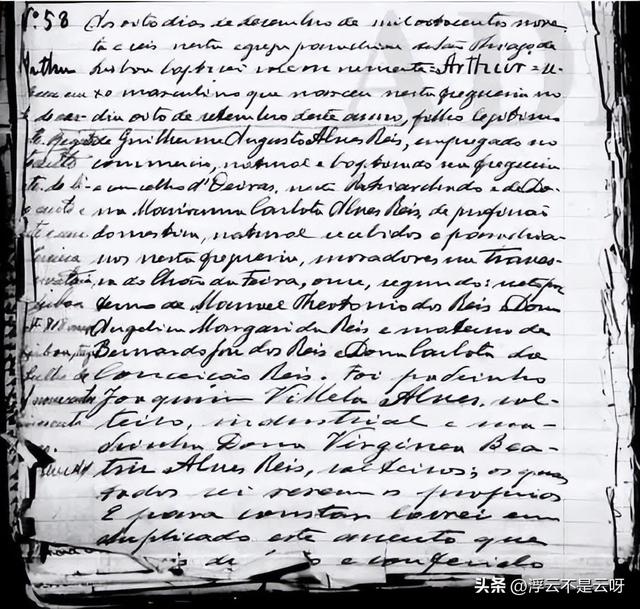 Nº 58 Aos oito dias de dezembro de mil oitocentos noven-
ta e seis nesta egreja parochial de São Thiago de
Arthur Lisboa baptizei solemnemente = Arthur = u
sexo masculino que nasceu nesta freguezia no
dia oito de setembro deste anno, filho legitimo
de Guilherme Augusto Alves Reis, empregado no
commercio, natural e baptizado na freguezia
e concelho d'Oeiras, neste Patriarchado e de Do-
na Marianna Carlota Alves Reis, de profissão
domestica, natural recebidos e parochia-
nos nesta freguezia, moradores na traves-
sa do Chão da Feira, onze, segundo: neto pa
terno de Manuel Theotonio dos Reis e Dona
Angelina Margarida Reis e materno de
Bernardo José dos Reis e Dona Carlota da
Conceição Reis. Foi padrinho
Joaquim Villela Alves, sol-
teiro, industrial e ma-
drinha Dona Virginea Bea-
triz Alves Reis, solteiros; os quaes
todos sei serem os proprios
E para constar lavrei em
duplicado este assento que
e conferido
头条 @浮云不是云呀